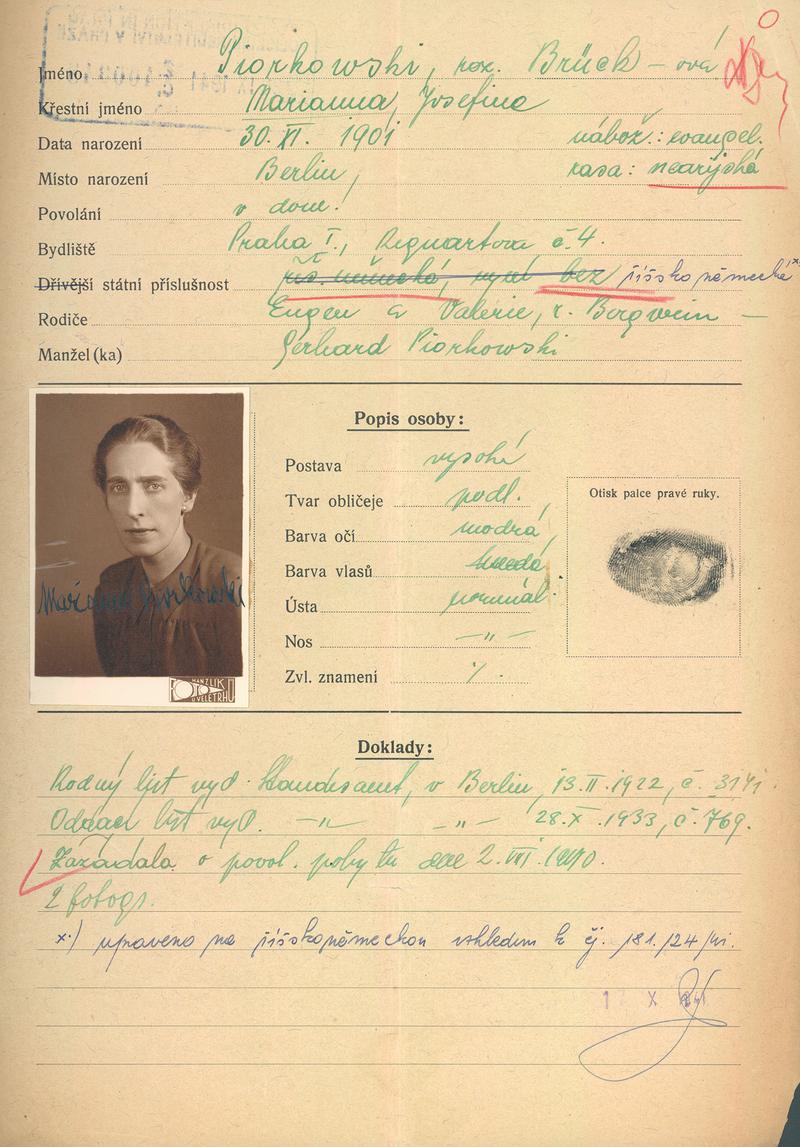 Jméno Piorkowski, roz. Brück-ová
Křestní jméno Marianna, Josefine
Data narození 30. XI. 1901 nábož.: evangel.
Místo narození Berlin, rasa: nearijská
Povolání v dom.
Bydliště Praha I., č. 4.
Dřívější státní příslušnost říš. německá, nyní bez říšskoněmecká x)
Rodiče Eugen a Valerie, r. Bergwein —
Manžel(ka) Gerhard Piorkowski
Popis osoby:
Postava vysoká
Tvar obličeje podl.
Barva očí modrá
Barva vlasů hnědá
Ústa normál.
Nos — " —
Zvl. znamení %
Otisk palce pravé ruky.
Marianna Piorkowski
MANZLIK
U VELETRHŮ
Doklady:
Rodný list vyd. Standesamt, v Berlin, 13. II. 1922, č.
Oddací list vyd. — " — — " — 28. X. 1933, č. 769.
Zažádala o povol. pobytu dne 2. VII. 1940.
2 fotogr.
x) upraveno na říšskoněmeckou vzhledem k čj. 181/24/
1 X 1941